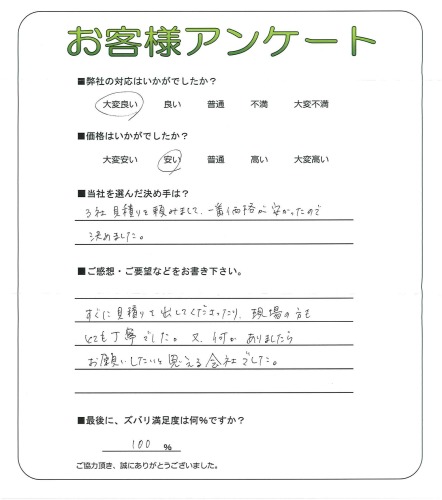 お客様アンケート
■弊社の対応はいかがでしたか？
大変良い 良い 普通 不満 大変不満
■価格はいかがでしたか？
大変安い 安い 普通 高い 大変高い
■当社を選んだ決め手は？
3社見積りを頼みまして、一番価格が安かったので
決めました。
■ご感想・ご要望などをお書き下さい。
すぐに見積りを出してくださったり、現場の方も
とても丁寧でした。又、何かありましたら
お願いしたいと思える会社でした。
■最後に、ズバリ満足度は何%ですか？
100 %
ご協力頂き、誠にありがとうございました。